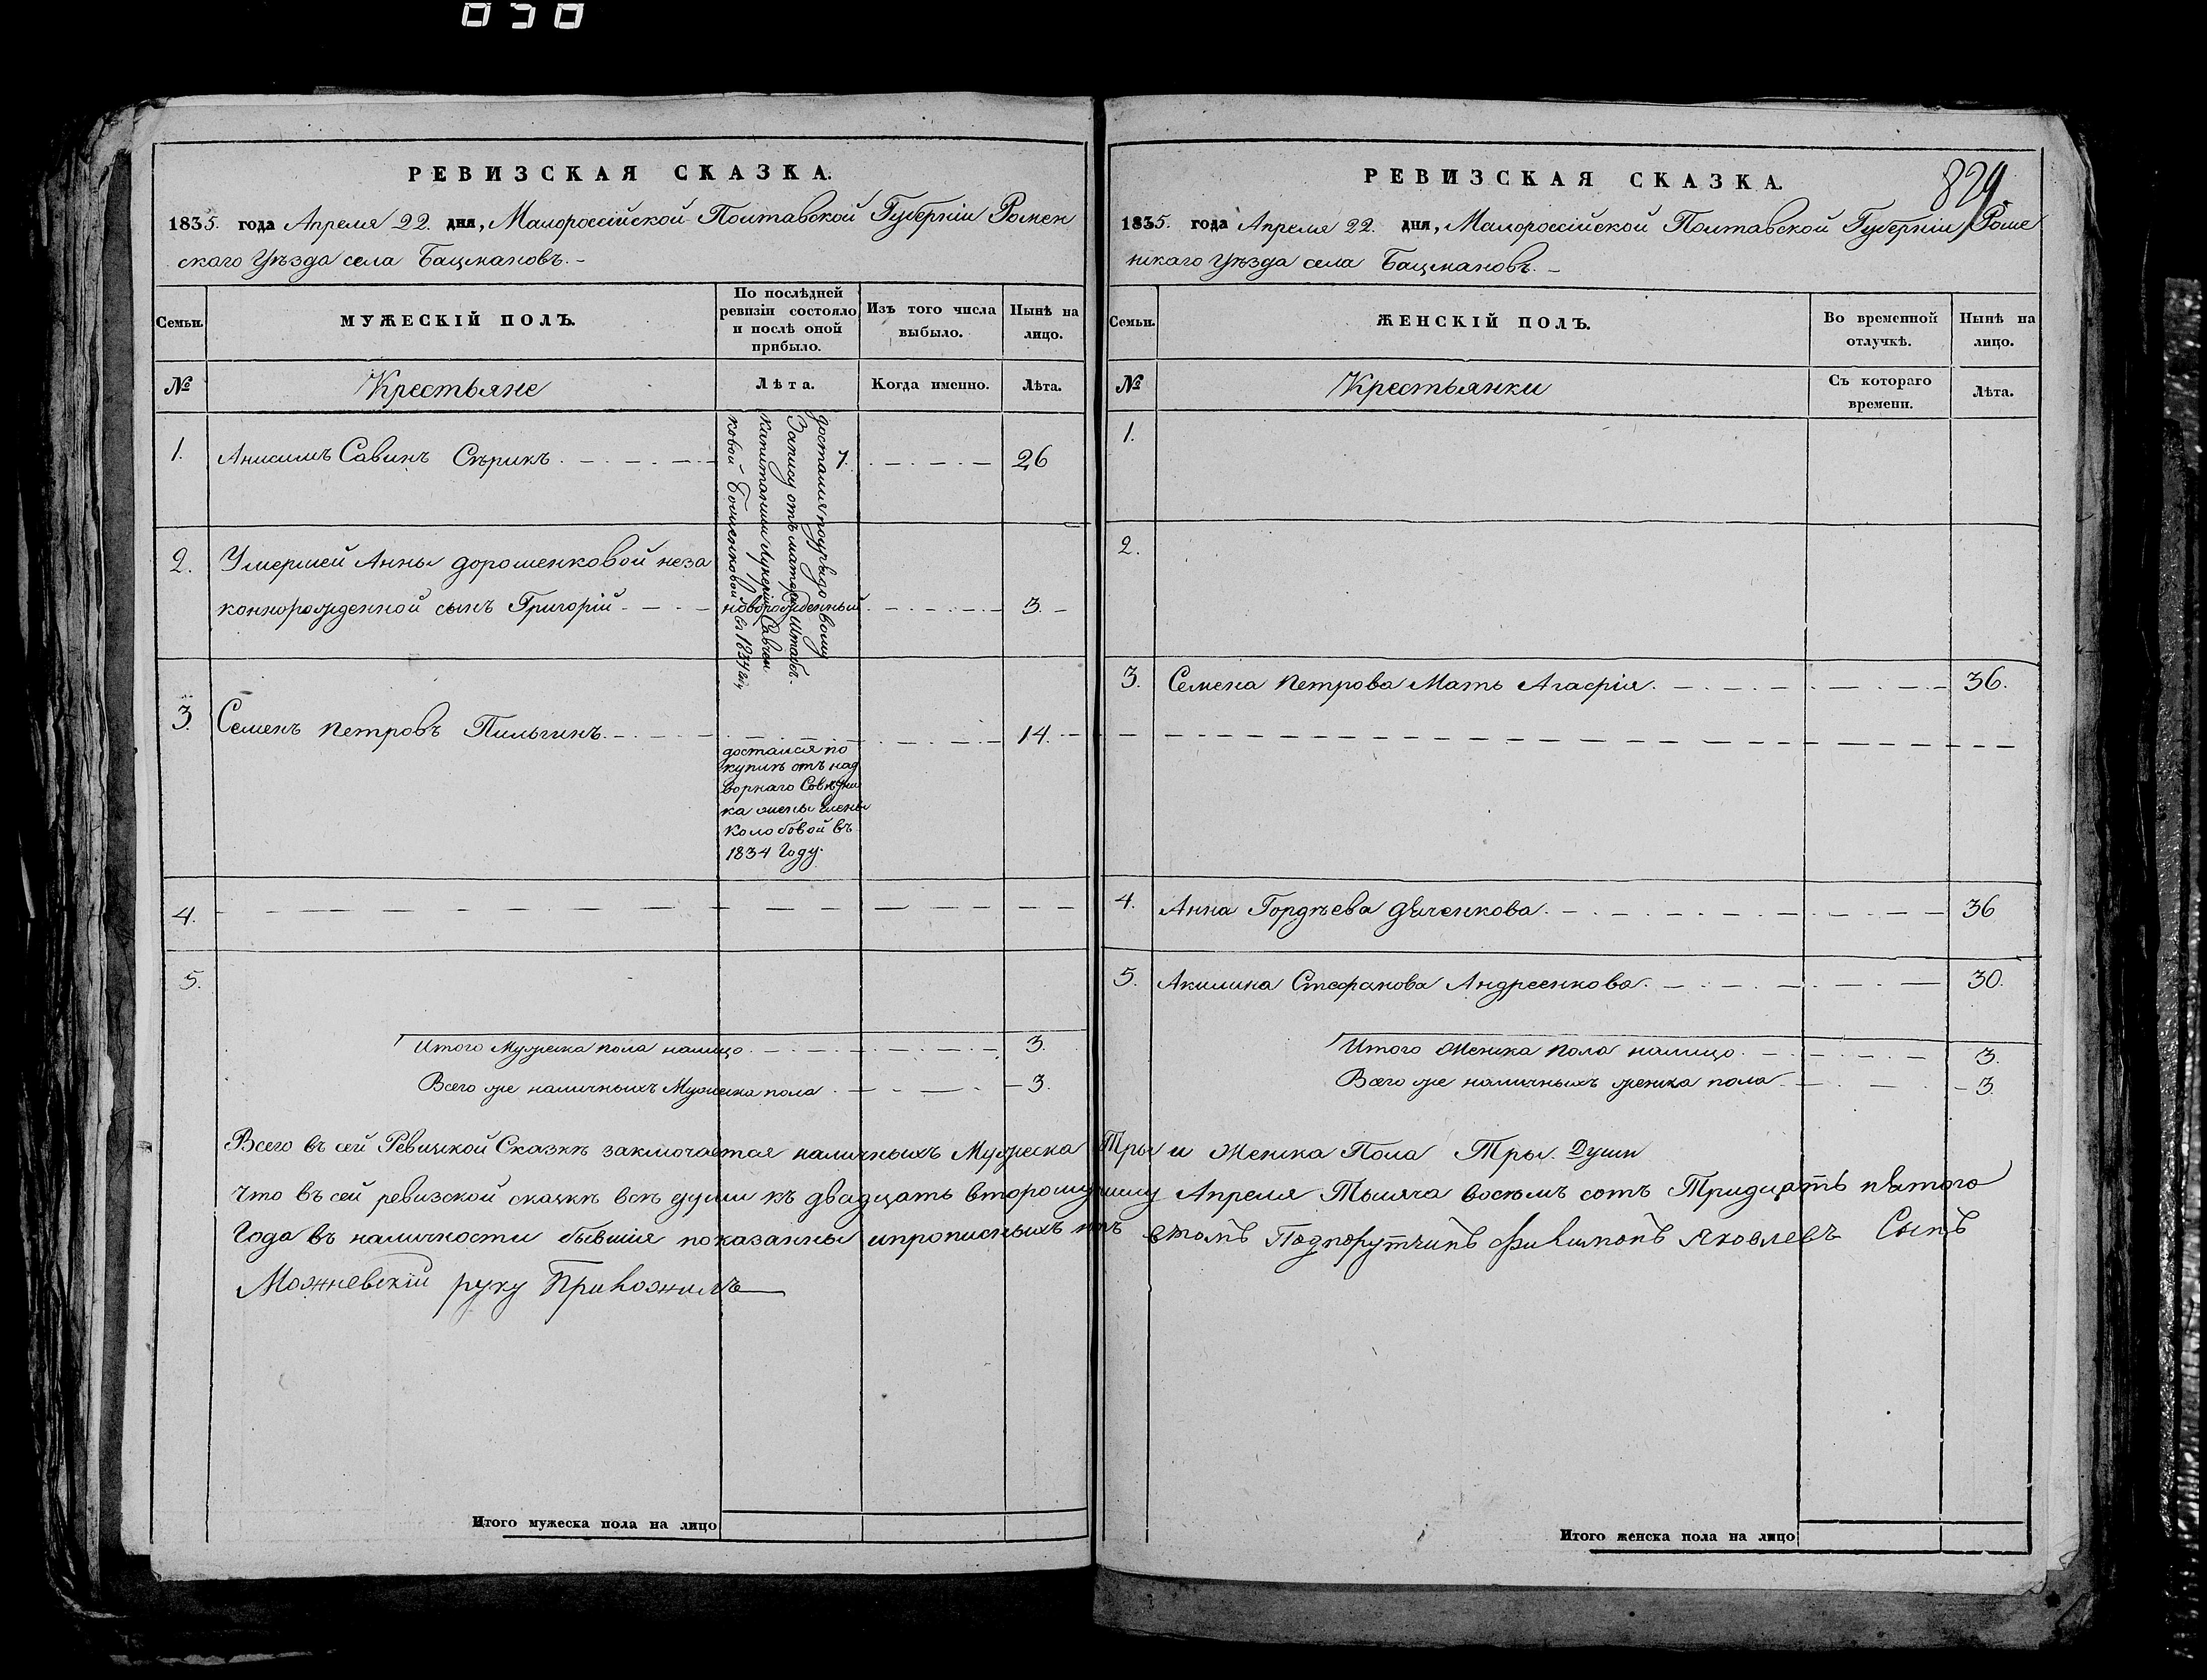 050
РЕВИЗСКАЯ СКАЗКА.
1835. года Апреля 22. дня, Малороссійской Полтавской Губерніи Ромен
скаго Уѣзда села Бацмановъ. –
Семьи.
МУЖЕСКІЙ ПОЛЪ.
По послѣдней
ревизіи состояло
и послѣ оной
прибыло.
Изъ того числа
выбыло.
Нынѣ на
лицо.
№
Крестьяне
Лѣта.
Когда именно.
Лѣта.
1. Анисимъ Савинъ Сѣрикъ. 7. 26
достался по
Запису отъ матери Штабъ-
капитанши Лукеріи Савчен
ковой в 1834
2. Умершей Анны дорошенковой неза
коннорожденной сынъ Григорій новорожденный 3.
3. Семенъ Петровъ Пильгинъ. 14.
достался по
купчѣ отъ над
ворнаго Совѣтни
ка жены Елены
Колобовой въ
1834 Году.
4.
5.
Итого Мужеска пола налицо. 3.
Всего же наличныхъ Мужеска пола. 3.
РЕВИЗСКАЯ СКАЗКА.
829
1835. года Апреля 22. дня, Малороссійской Полтавской Губерніи Роме
нскаго Уѣзда села Бацмановъ. –
Семьи.
ЖЕНСКІЙ ПОЛЪ.
Во временной
отлучкѣ.
Нынѣ на
лицо.
№
Крестьянки
Съ котораго
времени.
Лѣта.
1.
2.
3. Семена Петрова Мать Агафія. 36.
4. Анна Гордѣева Дяченкова. 36
5. Акилина Стефанова Андреенкова. 30.
Итого Женска пола налицо. 3.
Всего же наличныхъ женска пола 3.
Всего въ сей Ревизской Сказкѣ заключается наличныхъ Мужеска Тры и Женска Пола Тры. Души
Что въ сей ревизской сказкѣ всѣ души къ двадцать второму числу Апреля Тысяча восемъ сотъ Тридцать пятого
Года въ наличности бывшія показанны и прописныхъ нѣтъ втомъ Подпорутчикъ Филимонъ Яковлевъ Сынъ
Можневскій руку Приложилъ
Итого мужеска пола на лицо
Итого женска пола на лицо